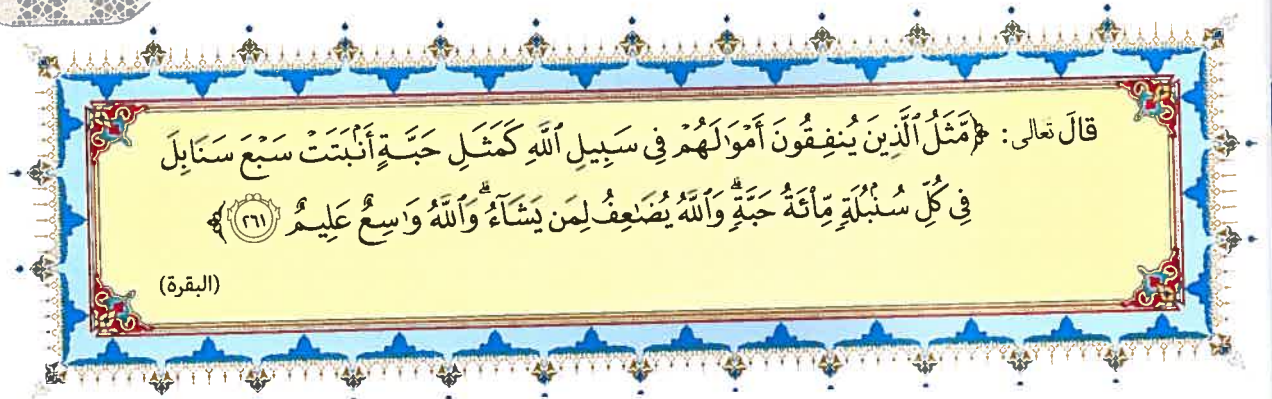 قالَ تعالى: ﴿مَّثَلُ ٱلَّذِينَ يُنفِقُونَ أَمْوَٰلَهُمْ فِى سَبِيلِ ٱللَّهِ كَمَثَلِ حَبَّةٍ أَنۢبَتَتْ سَبْعَ سَنَابِلَ
فِى كُلِّ سُنۢبُلَةٍ مِّا۟ئَةُ حَبَّةٍ ۗ وَٱللَّهُ يُضَٰعِفُ لِمَن يَشَآءُ ۗ وَٱللَّهُ وَٰسِعٌ عَلِيمٌ ٢٦١﴾
(البقرة)